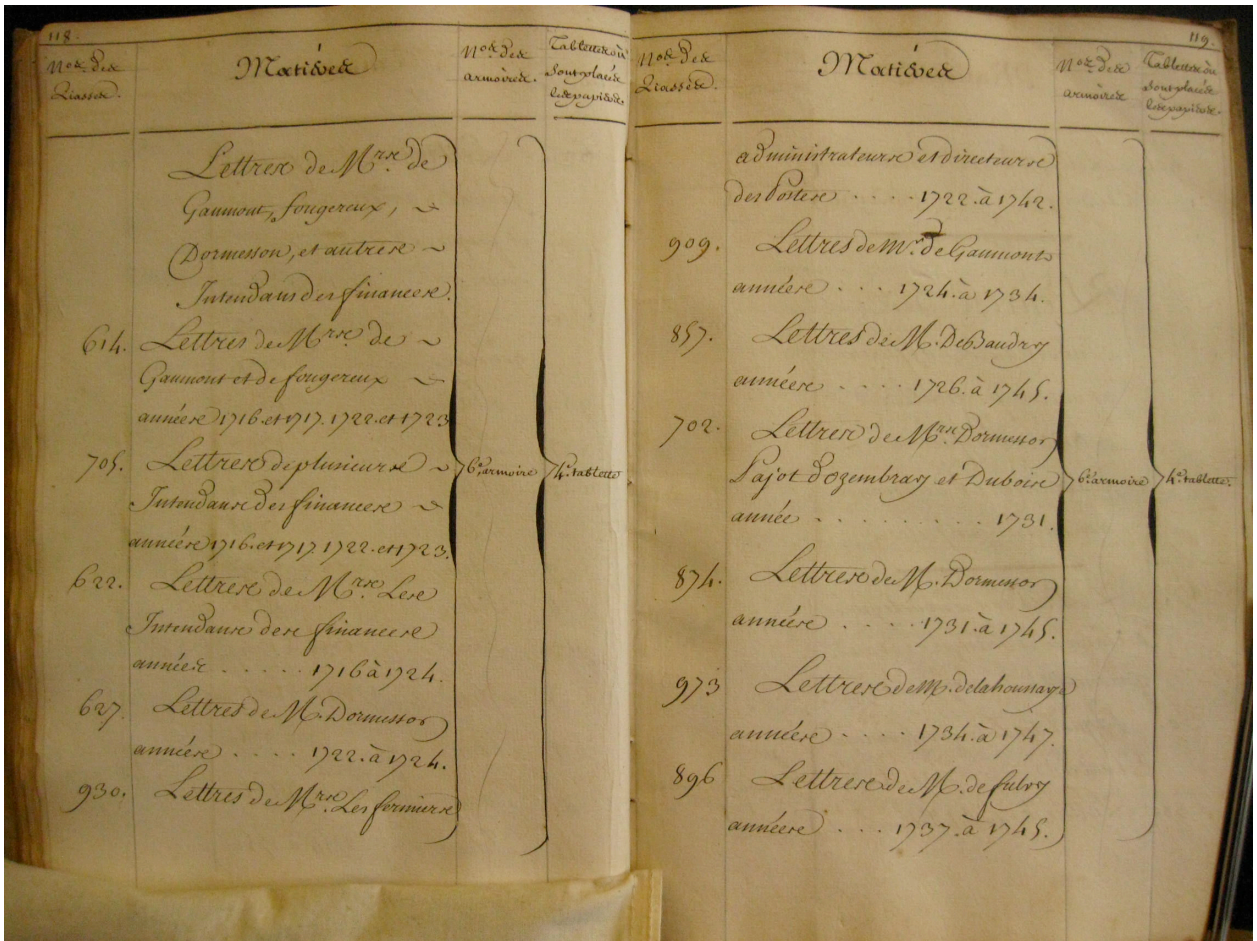 118.
Nos. Des Liasses.
Matières
Nos. des armoires.
Tablettes où sont placés les papiers.
Lettres de Mrs. de
Gaumont, fougereux,
Dormesson, et autres
Intendans des finances.
614. Lettres de Mrs. de
Gaumont et de fougereux
années 1716. et 1717. 1722. et 1723
705. Lettres de plusieurs
Intendans des finances
années 1716. et 1717. 1722. et 1723.
6e. armoire 4e. tablette
622. Lettres de Mrs. Les
Intendans des finances
années . . . . . 1716 à 1724.
627. Lettres de M. Dormesson
années . . . . 1722. à 1724.
930. Lettres de Mrs. Les fermiers
119.
Nos. Des Liasses.
Matières
Nos. Des armoires
Tablettes où sont placés les papiers.
administrateurs et directeurs
des Postes . . . . 1722. à 1742.
909. Lettres de Mr. de Gaumont
années . . . . 1724. à 1734.
857. Lettres de M. De Baudry
années . . . . 1726. à 1745.
702. Lettres de Mrs. Dormesson
Pajot Dozembray et Dubois
année . . . . . . . . . 1731.
6e. armoire 4e. tablette.
874. Lettres de M. Dormesson
années . . . . 1731. à 1745.
973 Lettres de M. delahoussaye
années . . . . 1734. à 1747.
896 Lettres de M. de fulvy
années . . . . 1737. à 1745.